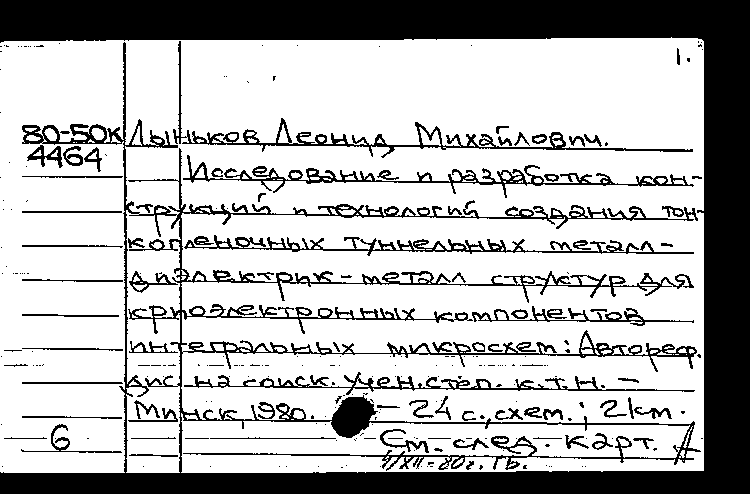 1.
80-50к Лыньков, Леонид Михайлович.
4464
Исследование и разработка кон-
струкций и технологий создания тон-
копленочных туннельных металл-
диэлектрик-металл структур для
криоэлектронных компонентов
интегральных микросхем: Автореф.
дис. на соиск. учен. степ. к.т.н. –
Минск, 1980. – 24 с., схем.; 21 см.
6 См. след. карт. А
4/XII-80г. Гб.